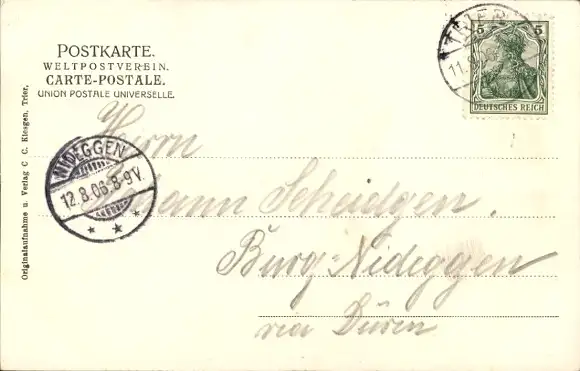 POSTKARTE.
WELTPOSTVEREIN.
CARTE-POSTALE.
UNION POSTALE UNIVERSELLE.
TRIER
11.8
5 5
DEUTSCHES REICH
Herrn
NIDEGGEN
12.8.06.8-9V.
* * *
Johann Scheidgen.
Burg-Nideggen
via Düren
Originalaufnahme u. Verlag C C. Kloegen, Trier.